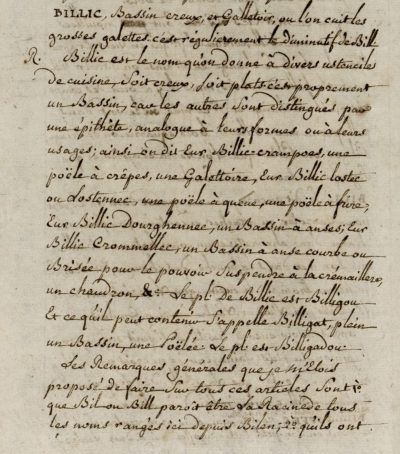 BILLIC, Bassin creux, et Galletoir, ou l'on cuit les
grosses galettes. c'est régulierement le diminutif de Bill
R. Billic est le nom qu'on donne à divers ustenciles
de cuisine, soit creux, soit plats c'est proprement
un Bassin, car les autres sont distingués par
une épithète, analogue à leurs formes ou à leurs
usages; ainsi on dit Eur Billic-crampoes, une
poële à crêpes, une Galettoire, Eur Billic lostec
ou Lostennec, une poële à queue, une poële à frire;
Eur Billic Dourghennec, un Bassin à anses; Eur
Billic Crommellec, un Bassin à anse courbe ou
Brisée pour le pouvoir suspendre à la crémaillere,
un chaudron, &c. Le pl. de Billic est Billigou
Et ce qu'il peut contenir s'appelle Billigat, plein
un Bassin, une Poëlée. Le pl. est Billigadou.
Les Remarques générales que je m'étois
proposé de faire sur tous ces articles sont 1º.
que Bil ou Bill paroit être la Racine de tous
les noms rangés ici depuis Bilen; 2º. qu'ils ont